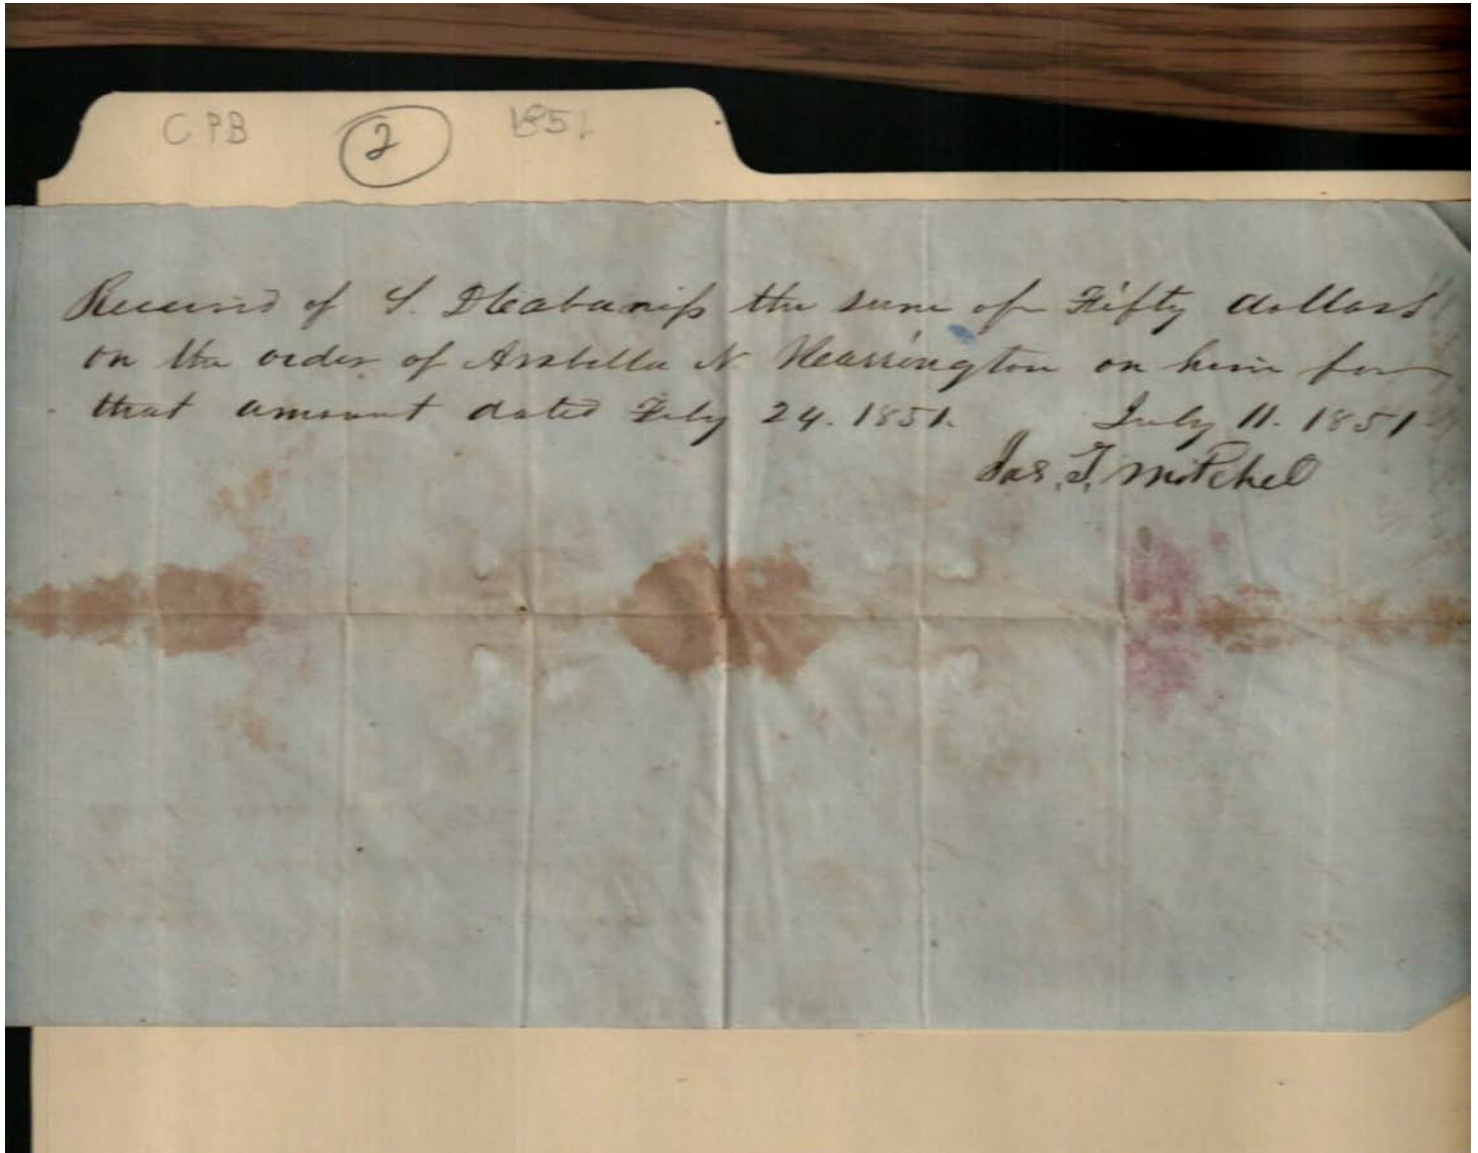 CPB 2 1851
Received of S. D. Cabaniss the sum of Fifty dollars
on the order of Arabella N. Harrington on him for
that amount dated Feby 24. 1851. July 11. 1851
Jas. T. Mitchel